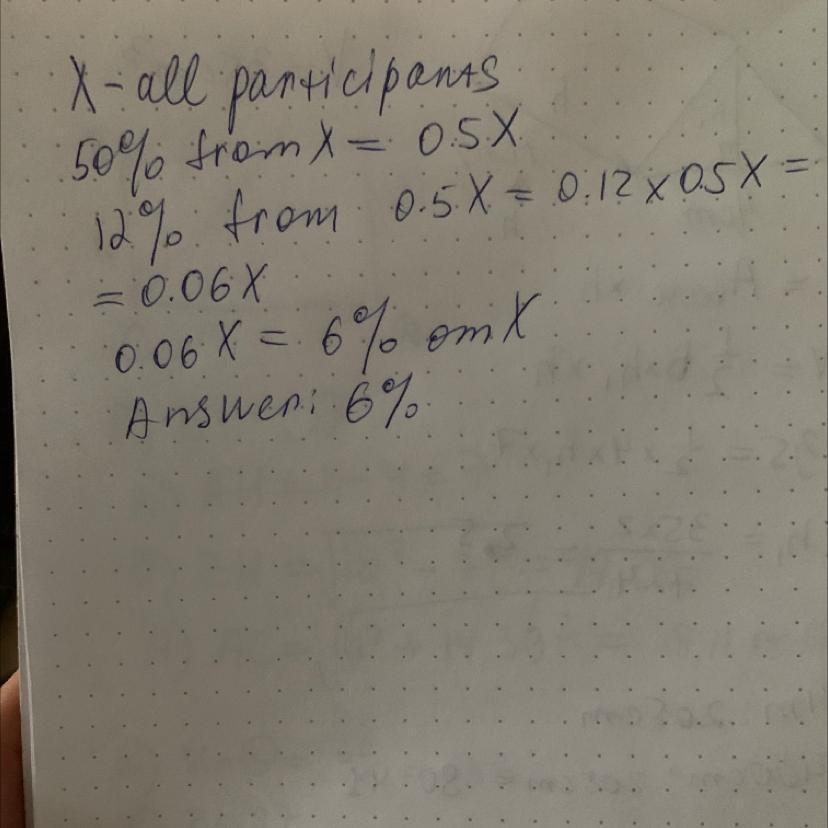 X - all participants
50% from X = 0.5X
12% from 0.5X = 0.12 x 0.5X =
= 0.06X
0.06X = 6% om X
Answer: 6%